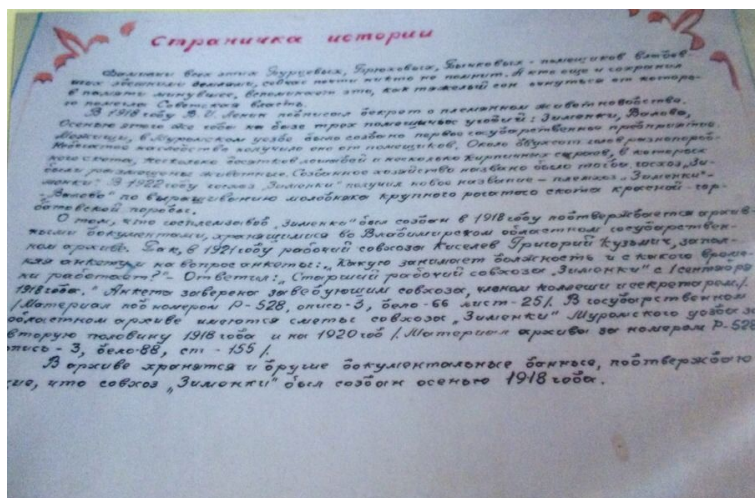 Страничка истории
Фамилии всех этих Бурцевых, Брюховых, Бычковых - помещиков владев-
ших здешними землями, сейчас почти никто не помнит. А кто еще и сохранил
в памяти минувшее, вспоминает это, как тяжелый сон очнуться от которо-
го помогла Советская власть.
В 1918 году В. И. Ленин подписал декрет о племенном животноводстве.
Осенью этого же года на базе трех помещичьих угодий: Зименки, Валово,
в Муромском уезде было создано первое государственное предприятие.
наследство получило оно от помещиков. Около двухсот голов разнопород-
ного скота, несколько десятков лошадей и несколько кирпичных сараев, в которых
были размещены животные. Созданное хозяйство названо было тогда госхоз „Зи-
менки". В 1922 году госхоз „Зименки" получил новое название - племхоз „Зименки"-
„Валово" по выращиванию молодняка крупного рогатого скота красной гор-
батовской породы.
О том, что госплемзавод „Зименки" был создан в 1918 году подтверждается архив-
ными документами, хранящимися во Владимирском областном государствен-
ном архиве. Так, в 1921 году рабочий совхоза Киселев Григорий Кузьмич, запол-
няя анкету и на вопрос анкеты: „Какую занимает должность и с какого време-
ни работает?"- Ответил: „Старший рабочий совхоза „Зименки" с 1 сентября
1918 года." Анкета заверена заведующим совхоза, членом коллегии и секретарем/.
/Материал под номером Р-528, опись-3, дело-66 лист-25/. В государственном
областном архиве имеются сметы совхоза „Зименки" Муромского уезда за
вторую половину 1918 года и на 1920 год /. Материал архива за номером Р-528
опись - 3, дело-88, ст - 155/.
В архиве хранятся и другие документальные данные, подтверждаю
ие, что совхоз „Зименки" был создан осенью 1918 года.